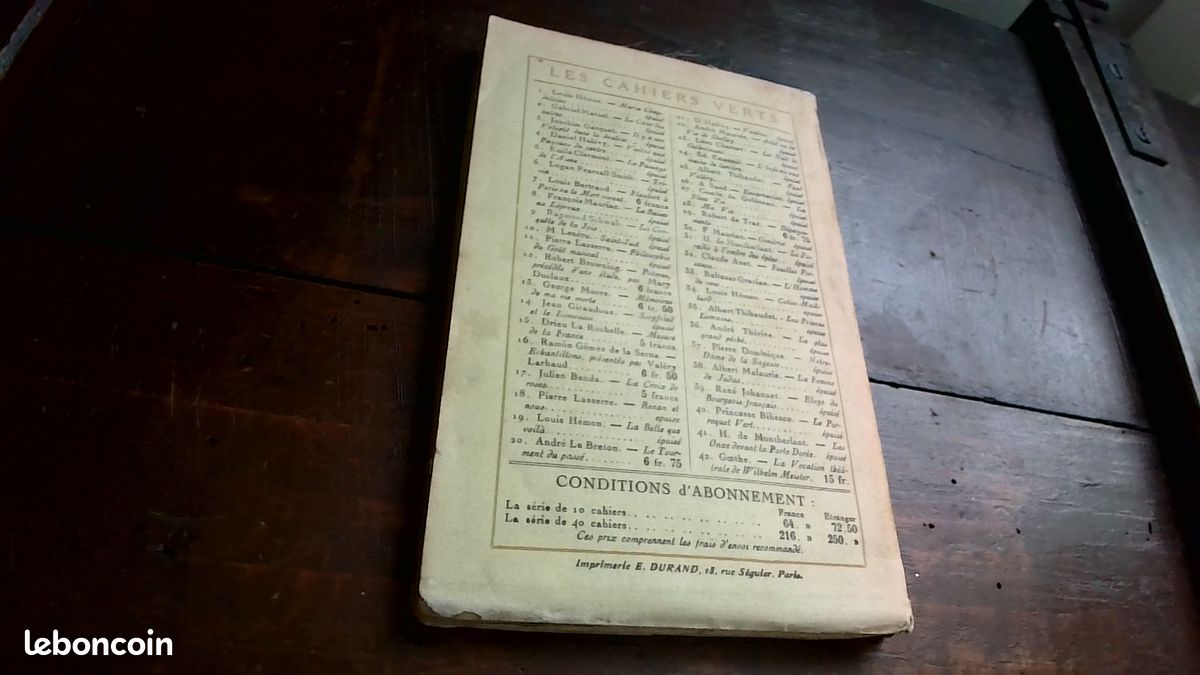 LES CAHIERS VERTS
1. Louis Hémon. — Maria Chap-
delaine épuisé
2. Gabriel Marcel. — Le Cœur des
autres. épuisé
3. Joachim Gasquet. — Il y a une
Volupté dans la douleur épuisé
4. Daniel Halévy. — Visites aux
Paysans du centre épuisé
5. Emile Clermont. — Le Passage
de l'Aisne épuisé
6. Logan Pearsall Smith. — Tri-
via épuisé
7. Louis Bertrand. — Flaubert à
Paris ou le Mort vivant. 6 francs
8. François Mauriac. — Le Baiser
au Lépreux épuisé
9. Raymond Schwab. — La Con-
quête de la Joie épuisé
10. M. Lenéru. Saint-Just épuisé
11. Pierre Lasserre. — Philosophie
du Goût musical épuisé
12. Robert Browning. — Poèmes,
précédés d'une étude, par Mary
Duclaux 6 francs
13. George Moore. — Mémoires
de ma vie morte 6 fr. 50
14. Jean Giraudoux. — Siegfried
et le Limousin épuisé
15. Drieu La Rochelle. — Mesure
de la France 5 francs
16. Ramón Gómes de la Serna. —
Echantillons, présentés par Valéry
Larbaud 6 fr. 50
17. Julien Benda. — La Croix de
roses 5 francs
18. Pierre Lasserre. — Renan et
nous épuisé
19. Louis Hémon. — La Belle que
voilà épuisé
20. André Le Breton. — Le Tour-
ment du passé 6 fr. 75
21. D. Halévy. — épuisé
22. André Maurois. — Ariel ou la
Vie de Shelley. épuisé
24. Ed. Estaunié. — L'Infirme aux
mains de lumière. épuisé
25. Albert Thibaudet. — Paul
Valéry. épuisé
27. Comte de Gobineau. — La
28. Ma Vie épuisé
29. Robert de Traz. — Dépayse-
ments 6 fr. 75
30. F. Mauriac. — Genitrix épuisé
31. H. de Montherlant. — Le Pa-
radis à l'ombre des épées. épuisé
32. Claude Anet. — Feuilles Per-
sanes. épuisé
33. Baltasar Gracian. — L'Homme
de cour épuisé
34. Louis Hémon. — Colin-Mail-
lard épuisé
35. Albert Thibaudet. — Les Princes
Lorrains épuisé
36. André Thérive. — Le plus
grand péché. épuisé
37. Pierre Dominique. — Notre-
Dame de la Sagesse épuisé
38. Albert Malaurie. — La Femme
de Judas épuisé
39. René Johannet. — Eloge du
Bourgeois français épuisé
40. Princesse Bibesco. — Le Per-
roquet Vert épuisé
41. H. de Montherlant. — Les
Onze devant la Porte Dorée. épuisé
42. Gœthe. — La Vocation théâ-
trale de Wilhelm Meister. 15 fr.
CONDITIONS d'ABONNEMENT :
France Etranger
La série de 10 cahiers 64. » 72.50
La série de 40 cahiers 216. » 250. »
Ces prix comprennent les frais d'envoi recommandé.
Imprimerie E. DURAND, 18, rue Séguier, Paris.
leboncoin